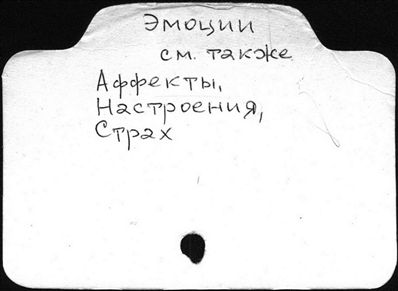 Эмоции
см. также
Аффекты,
Настроения,
Страх